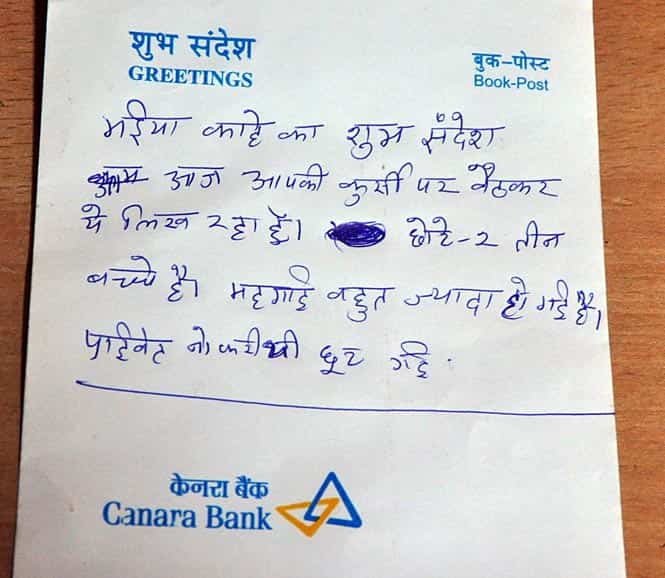 शुभ संदेश
GREETINGS
बुक-पोस्ट
Book-Post
भईया काहे का शुभ संदेश
आज आपकी कुर्सी पर बैठकर
ये लिख रहा हूँ। छोटे-२ तीन
बच्चे है। महगाई बहुत ज्यादा हो गई है।
प्राईवेट नौकरी थी छूट गई.
केनरा बैंक
Canara Bank